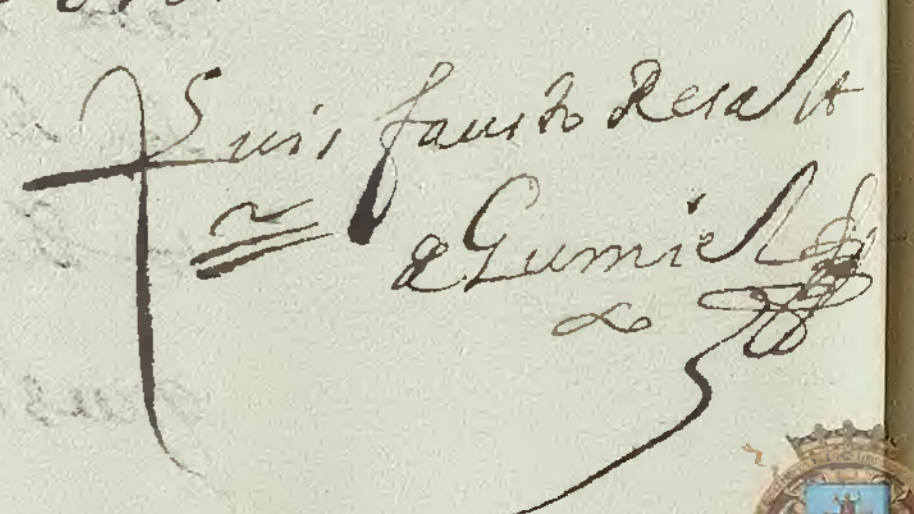 Luis fausto Resalt
de Gumiel